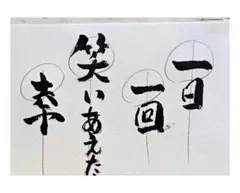 一日
一回
笑いあえた
素